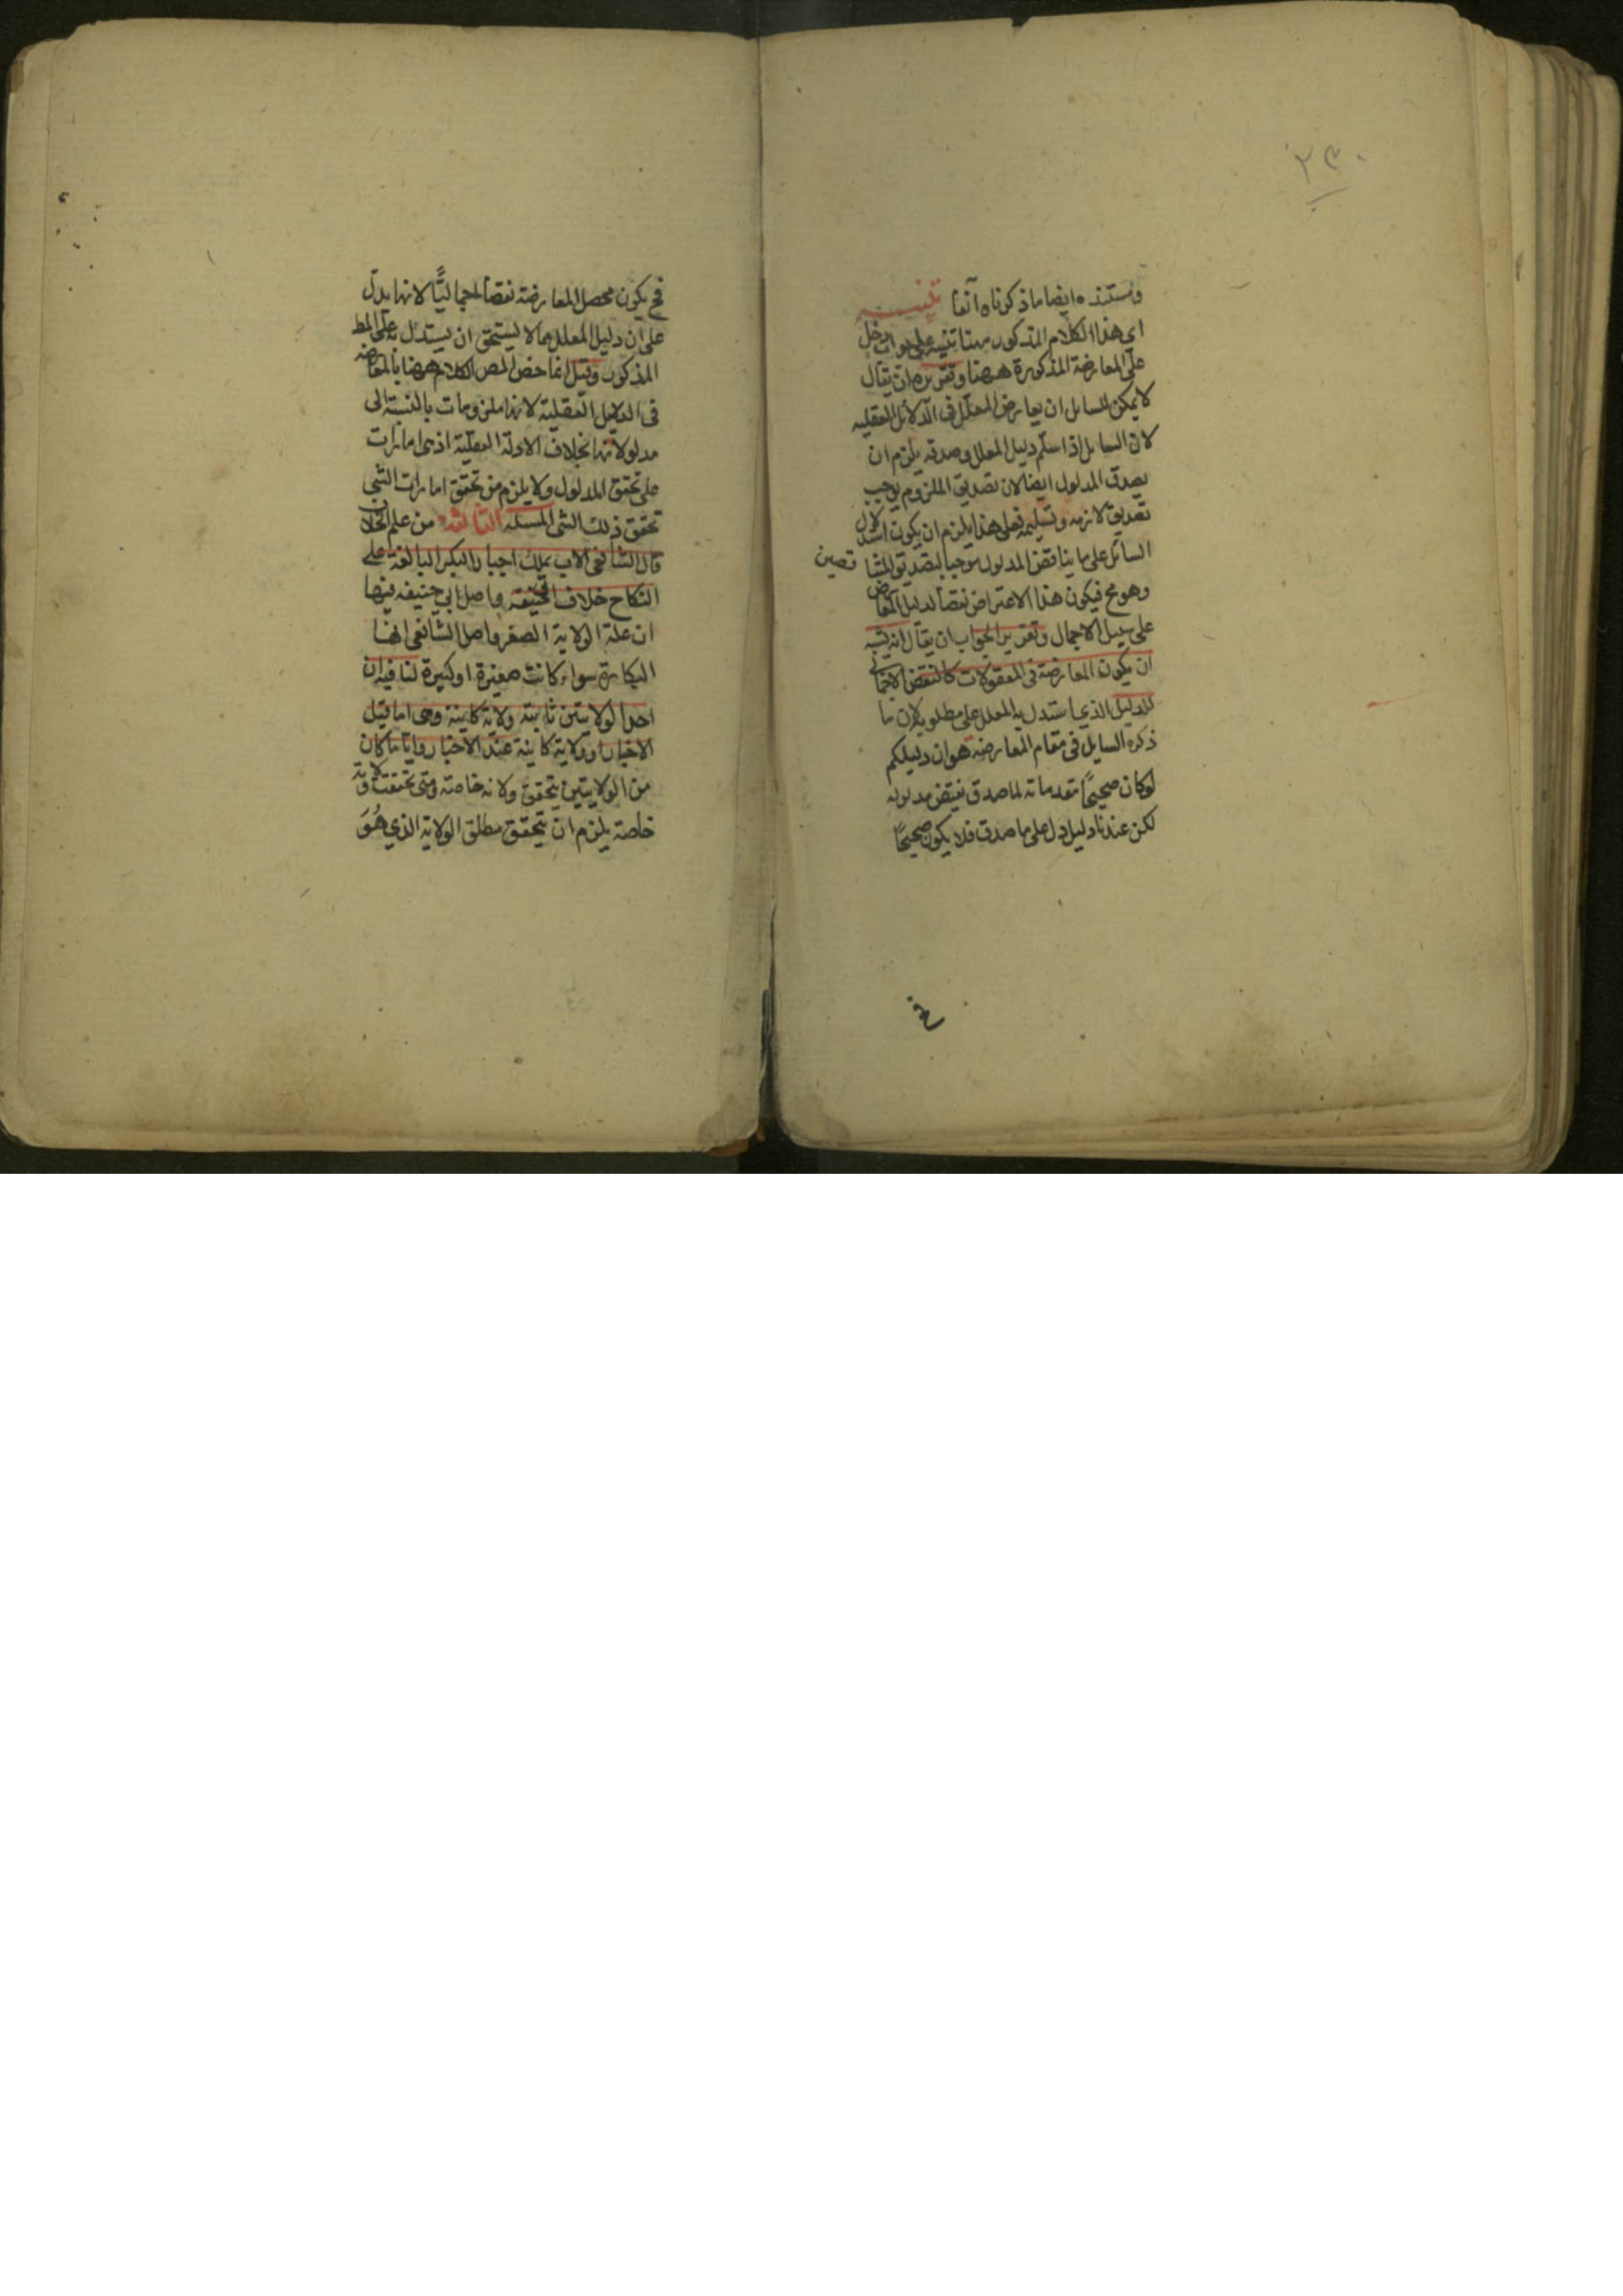 ٢٣٠
ومستنده ايضا ما ذكرناه آنفا تنبيه
اي هذا الكلام المذكور ههنا تنبيه على جواب دخل
على المعارضة المذكورة ههنا وتقريره ان يقال
لا يمكن للسايل ان يعارض المعلل فى الدلائل العقليه
لان السايل اذا سلم دليل المعلل وصدقه يلزم ان
يصدق المدلول ايضا لان تصديق الملزوم يوجب
تصديق لازمه وتسليمه فعلى هذا يلزم ان يكون استدلال
السائل على ما يناقض المدلول موجبا لتصديق المتنا قضين
وهو مح فيكون هذا الاعتراض نقضا لدليل المعارض
على سبيل الاجمال وتقرير الجواب ان يقال انه يشبه
ان يكون المعارضة فى المعقولات كالنقض الاجمالي
للدليل الذي استدل به المعلل على مطلوبه لان ما
ذكره السايل فى مقام المعارضه هو ان دليلكم
لو كان صحيحًا مقدماته لما صدق نقيض مدلوله
لكن عندنا دليل دل على ما صدق فلا يكون صحيحًا
فح يكون محصل المعارضة نقضا اجماليًّا لانها يدل
على ان دليل المعلل مما لا يستحق ان يستدل به على المط
المذكور وقيل انما خص المص الكلام ههنا بالمعارضه
فى الدلايل العقلية لانها ملزومات بالنسبة الى
مدلولاتها بخلاف الادلة النقلية اذ هى امارات
على تحقق المدلول ولا يلزم من تحقق امارات الشي
تحقق ذلك الشى المسئله الثالثه من علم الخلاف
قال الشافعى الاب يملك اجبار البكر البالغة على
النكاح خلافا لابي حنيفة واصل ابي حنيفه فيها
ان علة الولاية الصغر واصل الشافعى انها
البكارة سواء كانت صغيرة او كبيرة لنا فيه ان
احدا لولايتين ثابتة ولاية كاينة وهى اما قبل
الاختيار او ولاية كاينة عند الاختيار وايا ما كان
من الولايتين يتحقق ولاية خاصة ومتى تحققت ولاية
خاصة يلزم ان يتحقق مطلق الولاية الذي هُوَ